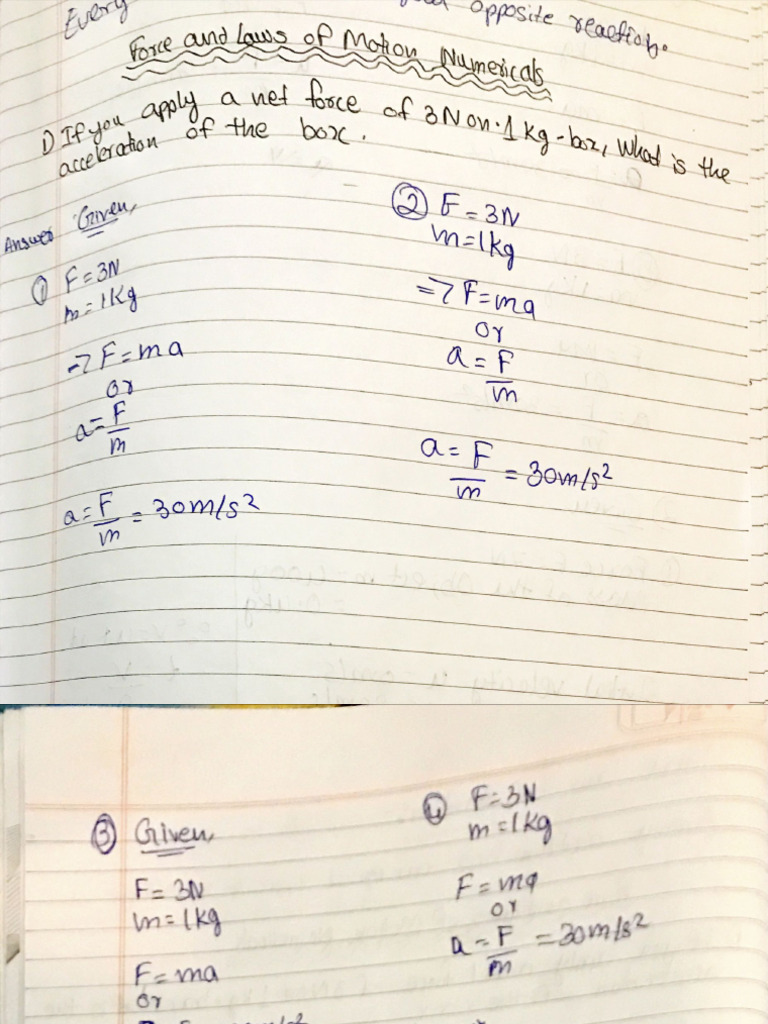 Every
opposite reaction.
Force and Laws of Motion Numericals
1) If you apply a net force of 3N on 1 kg-box, What is the
acceleration of the box.
Answer Given,
① F = 3N
m = 1Kg
→ F = ma
or
a = F
m
a = F = 30m/s²
m
② F = 3N
m = 1kg
=> F = ma
or
a = F
m
a = F = 30m/s²
m
③ Given,
F = 3N
m = 1kg
F = ma
or
④ F = 3N
m = 1kg
F = ma
or
a = F = 30m/s²
m